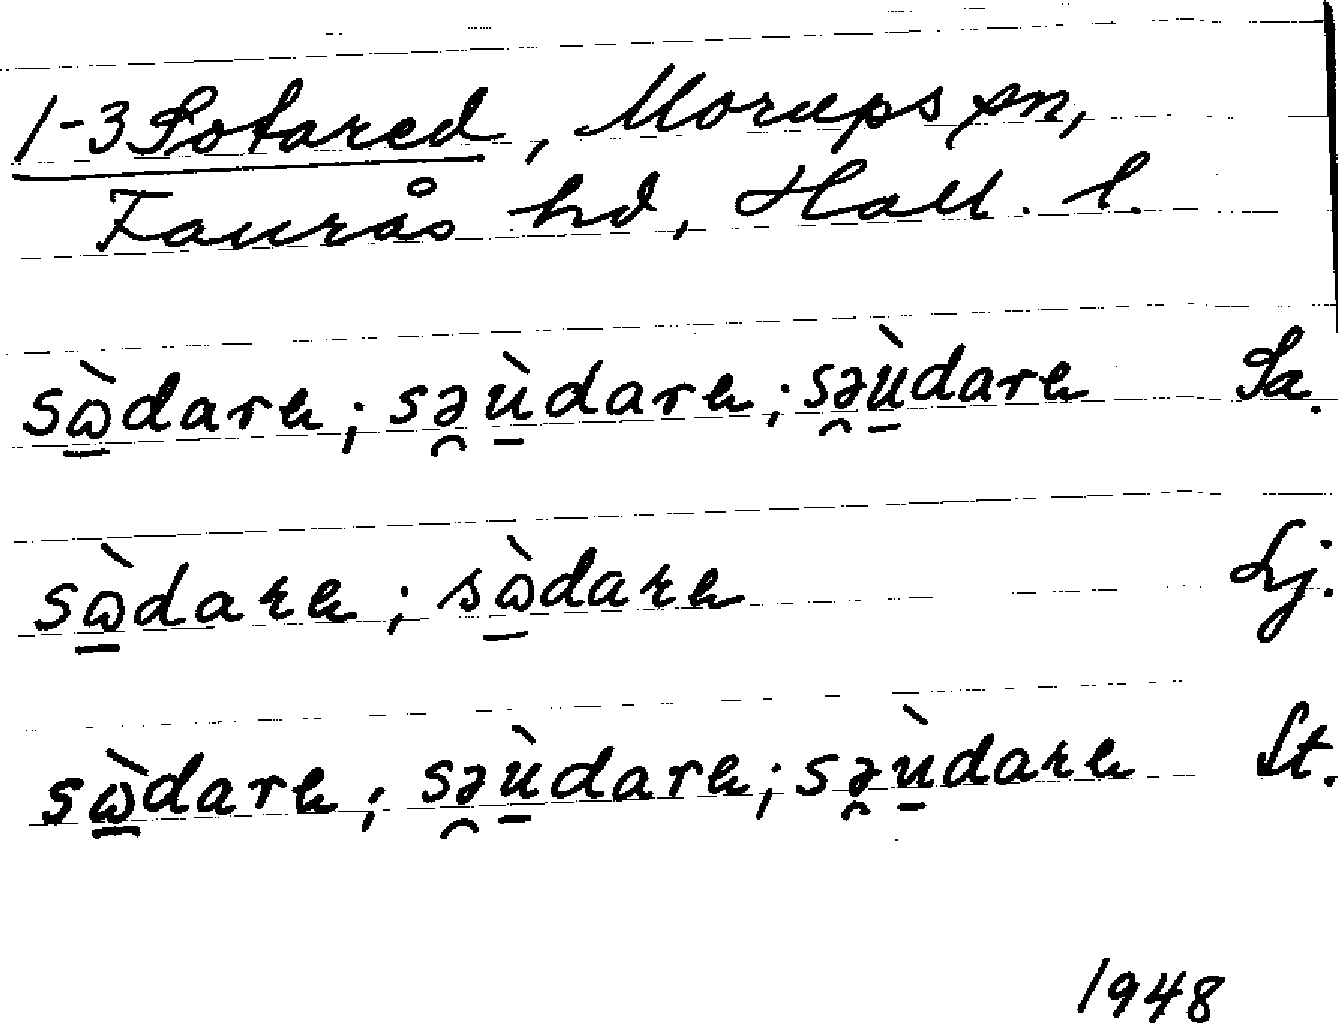 1-3 Sotared, Morups sn,
Faurås hd, Hall. l.
sὼ̲darɐ; sə̯ù̲darɐ; sə̯ù̲darɐ Sa.
sὼ̲darɐ; sὼ̲darɐ Lj.
sὼ̲darɐ; sə̯ù̲darɐ; sə̯ù̲darɐ St.
1948